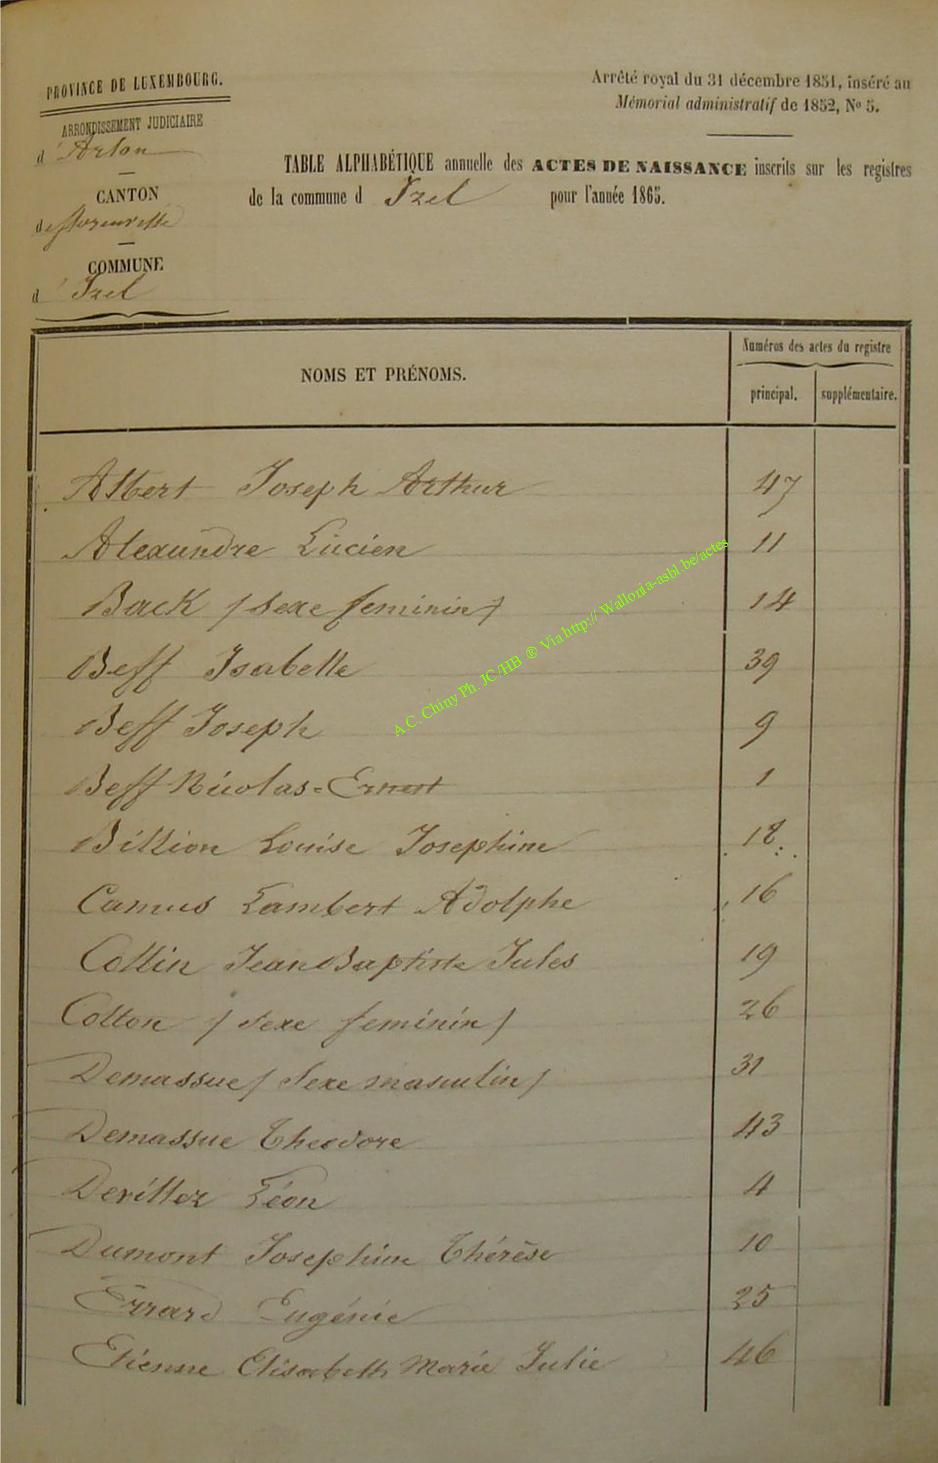 PROVINCE DE LUXEMBOURG.
ARRONDISSEMENT JUDICIAIRE
d'Arlon
CANTON
de Florenville
COMMUNE
d'Izel
Arrêté royal du 31 décembre 1851, inséré au
Mémorial administratif de 1852, No 5.
TABLE ALPHABÉTIQUE annuelle des ACTES DE NAISSANCE inscrits sur les registres
de la commune d Izel pour l'année 1865.
NOMS ET PRÉNOMS.
Numéros des actes du registre
principal. supplémentaire.
Albert Joseph Arthur 47
Alexandre Lucien 11
Back (sexe feminin) 14
Beff Isabelle 39
Beff Joseph 9
Beff Nicolas-Ernest 1
Billion Louise Josephine 18
Camus Lambert Adolphe 16
Collin Jean Baptiste Jules 19
Colton (sexe feminin) 26
Demassue (sexe masculin) 31
Demassue Theodore 43
Devillez Léon 4
Dumont Josephine Thérèse 10
Errard Eugénie 25
Etienne Elisabeth Marie Julie 46
A.C. Chiny Ph. JC/HB ® Via http:// Wallonia-asbl.be/actes